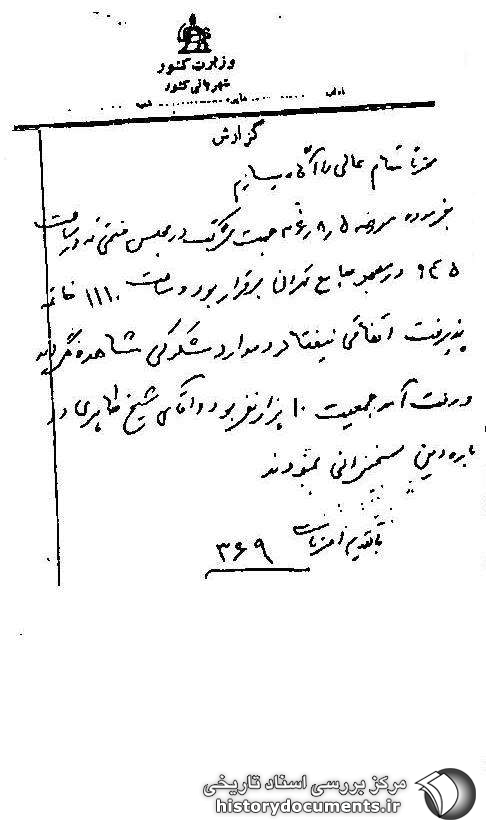 وزارت کشور
شهربانی کشور
اداره ............ دایره ............ شعبه ............
گزارش
محترماً مقام عالی را آگاه میسازم
بفرموده مورخه ۵ر۸ر۴۶ جهت شرکت در مجلس ختمی که در ساعت
۹۴۵ در مسجد جامع تهران برقرار بود و ساعت ۱۱۱۰ خاتمه
پذیرفت اتفاقی نیفتاد و موارد مشکوکی مشاهده نگردید
و رفت آمد جمعیت ۱۰ هزار نفر بود و آقای شیخ طاهری در
باره دین سخنرانی نمودند
با تقدیم احترامات
۳۶۹
مرکز بررسی اسناد تاریخی
historydocuments.ir